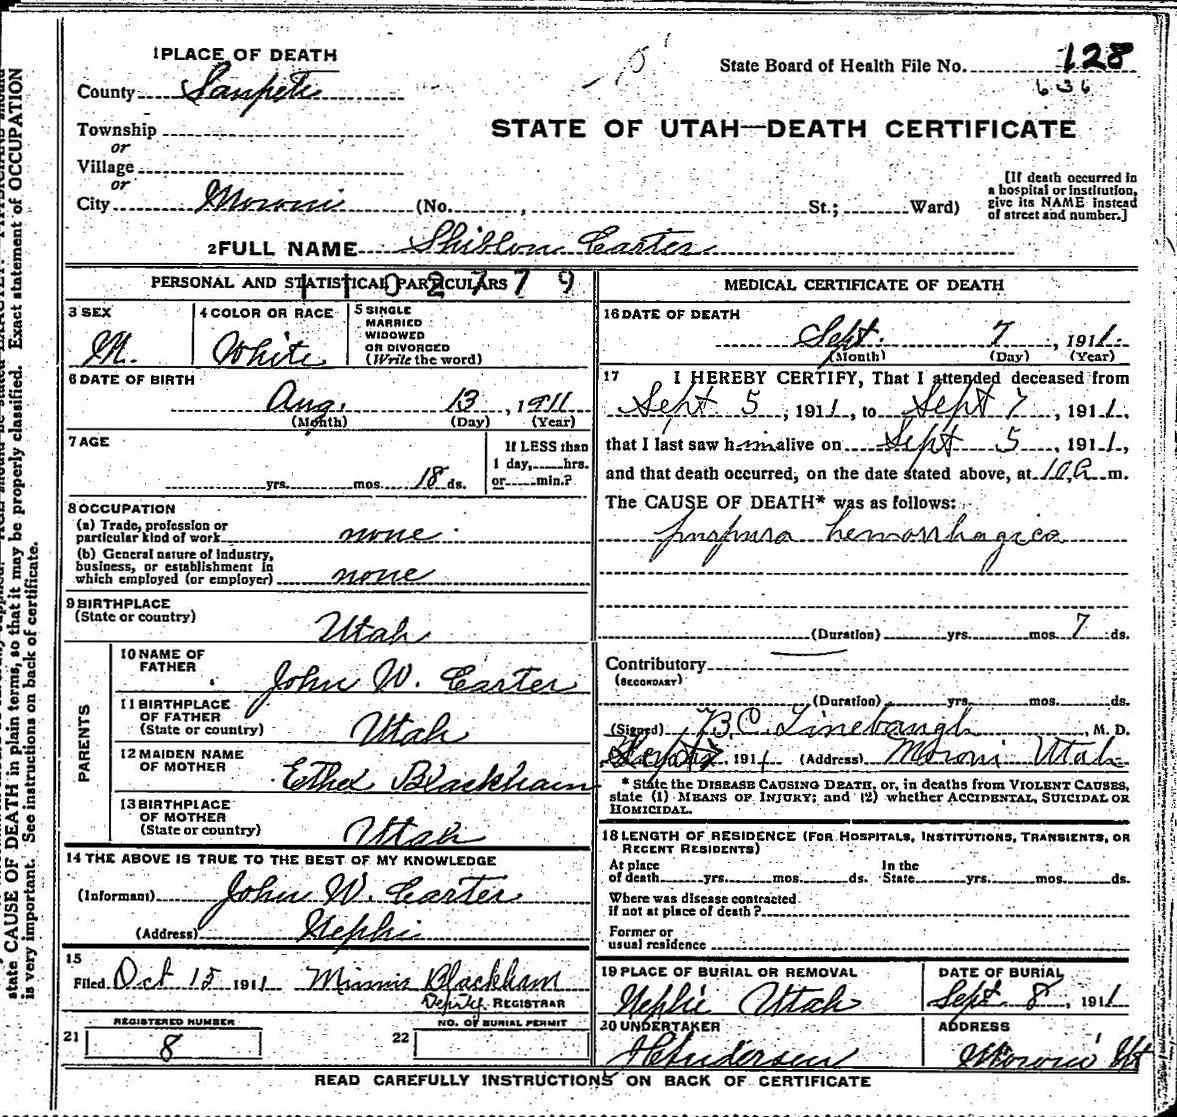 1 PLACE OF DEATH
County Sanpete
Township
or
Village
or
City Moroni (No. , St.; Ward)
State Board of Health File No. 128
636
STATE OF UTAH—DEATH CERTIFICATE
[If death occurred in
a hospital or institution,
give its NAME instead
of street and number.]
2 FULL NAME Shiblon Carter
PERSONAL AND STATISTICAL PARTICULARS
1102779
3 SEX
M.
4 COLOR OR RACE
White
5 SINGLE
MARRIED
WIDOWED
OR DIVORCED
(Write the word)
6 DATE OF BIRTH
Aug. 13, 1911
(Month) (Day) (Year)
7 AGE
yrs. mos. 18 ds.
If LESS than
1 day, hrs.
or min.?
8 OCCUPATION
(a) Trade, profession or
particular kind of work none
(b) General nature of industry,
business, or establishment in
which employed (or employer) none
9 BIRTHPLACE
(State or country)
Utah
PARENTS
10 NAME OF
FATHER
John W. Carter
11 BIRTHPLACE
OF FATHER
(State or country)
Utah
12 MAIDEN NAME
OF MOTHER
Ethel Blackham
13 BIRTHPLACE
OF MOTHER
(State or country)
Utah
14 THE ABOVE IS TRUE TO THE BEST OF MY KNOWLEDGE
(Informant) John W. Carter
(Address) Nephi
15
Filed Oct 15 1911 Minnie Blackham
Deputy REGISTRAR
21 REGISTERED NUMBER
8
22 NO. OF BURIAL PERMIT
MEDICAL CERTIFICATE OF DEATH
16 DATE OF DEATH
Sept. 7, 1911.
(Month) (Day) (Year)
17 I HEREBY CERTIFY, That I attended deceased from
Sept 5, 1911, to Sept 7, 1911,
that I last saw him alive on Sept 5, 1911,
and that death occurred, on the date stated above, at 10 a m.
The CAUSE OF DEATH* was as follows:
purpura hemorrhagica
(Duration) yrs. mos. 7 ds.
Contributory
(SECONDARY)
(Duration) yrs. mos. ds.
(Signed) B.C. Linebaugh M. D.
Sept 7 1911 (Address) Moroni Utah
* State the DISEASE CAUSING DEATH, or, in deaths from VIOLENT CAUSES,
state (1) MEANS OF INJURY; and (2) whether ACCIDENTAL, SUICIDAL OR
HOMICIDAL.
18 LENGTH OF RESIDENCE (FOR HOSPITALS, INSTITUTIONS, TRANSIENTS, OR
RECENT RESIDENTS)
At place
of death yrs. mos. ds.
In the
State yrs. mos. ds.
Where was disease contracted
if not at place of death?
Former or
usual residence
19 PLACE OF BURIAL OR REMOVAL
Nephi Utah
DATE OF BURIAL
Sept. 8, 1911
20 UNDERTAKER
Andersen
ADDRESS
Moroni Ut
READ CAREFULLY INSTRUCTIONS ON BACK OF CERTIFICATE
state CAUSE OF DEATH in plain terms, so that it may be properly classified. Exact statement of OCCUPATION
is very important. See instructions on back of certificate.